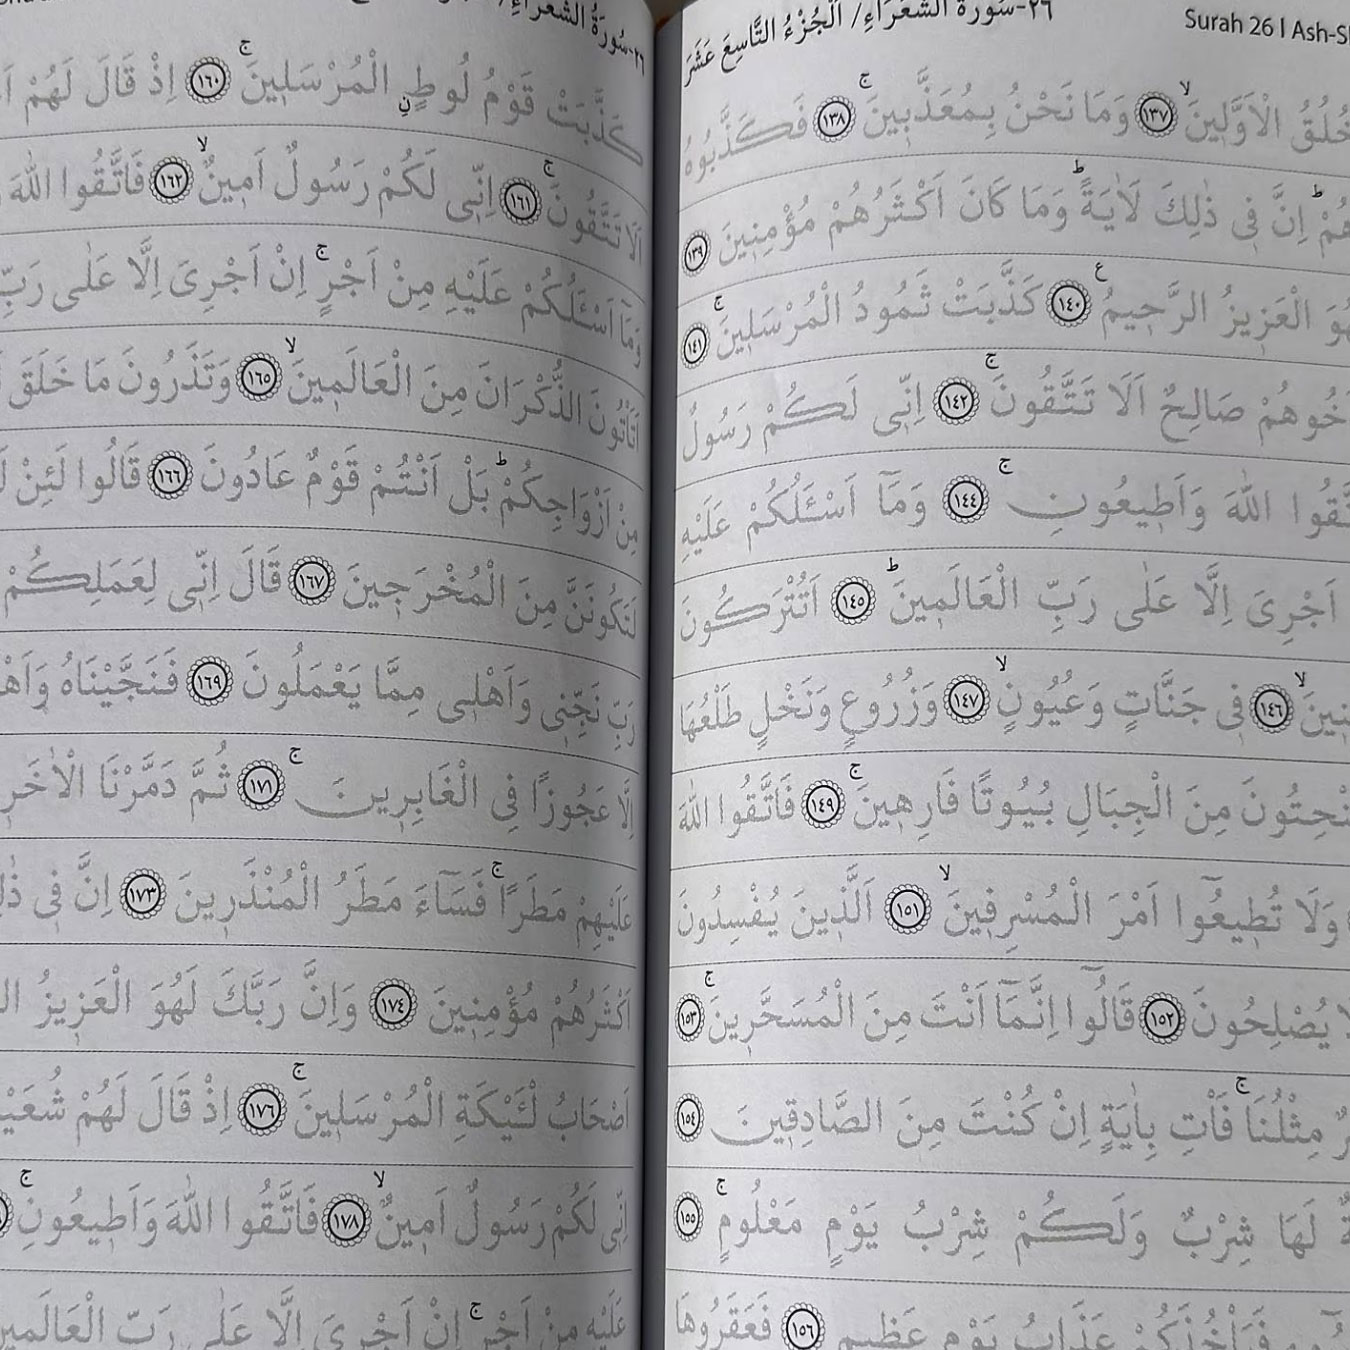 ٢٦-سُورَةُ الشُّعَرَاءِ/ اَلْجُزْءُ التَّاسِعَ عَشَرَ
Surah 26 | Ash-S
خُلُقُ الْاَوَّلٖينَۙ ﴿١٣٧﴾ وَمَا نَحْنُ بِمُعَذَّبٖينَۚ ﴿١٣٨﴾ فَكَذَّبُوهُ
هُمْؕ اِنَّ فٖى ذٰلِكَ لَاٰيَةًؕ وَمَا كَانَ اَكْثَرُهُمْ مُؤْمِنٖينَ ﴿١٣٩﴾
هُوَ الْعَزٖيزُ الرَّحٖيمُࣖ ﴿١٤٠﴾ كَذَّبَتْ ثَمُودُ الْمُرْسَلٖينَۚ ﴿١٤١﴾
خُوهُمْ صَالِحٌ اَلَا تَتَّقُونَۚ ﴿١٤٢﴾ اِنّٖى لَكُمْ رَسُولٌ
تَّقُوا اللّٰهَ وَاَطٖيعُونِۚ ﴿١٤٤﴾ وَمَٓا اَسْـَٔلُكُمْ عَلَيْهِ
اَجْرِىَ اِلَّا عَلٰى رَبِّ الْعَالَمٖينَؕ ﴿١٤٥﴾ اَتُتْرَكُونَ
نٖينَۙ ﴿١٤٦﴾ فٖى جَنَّاتٍ وَعُيُونٍۙ ﴿١٤٧﴾ وَزُرُوعٍ وَنَخْلٍ طَلْعُهَا
نْحِتُونَ مِنَ الْجِبَالِ بُيُوتًا فَارِهٖينَۚ ﴿١٤٩﴾ فَاتَّقُوا اللّٰهَ
وَلَا تُطٖيعُٓوا اَمْرَ الْمُسْرِفٖينَۙ ﴿١٥١﴾ اَلَّذٖينَ يُفْسِدُونَ
لَا يُصْلِحُونَ ﴿١٥٢﴾ قَالُٓوا اِنَّمَٓا اَنْتَ مِنَ الْمُسَحَّرٖينَۚ ﴿١٥٣﴾
رٌ مِثْلُنَاۚ فَاْتِ بِاٰيَةٍ اِنْ كُنْتَ مِنَ الصَّادِقٖينَ ﴿١٥٤﴾
ةٌ لَهَا شِرْبٌ وَلَكُمْ شِرْبُ يَوْمٍ مَعْلُومٍۚ ﴿١٥٥﴾
فَيَاْخُذَكُمْ عَذَابُ يَوْمٍ عَظٖيمٍ ﴿١٥٦﴾ فَعَقَرُوهَا
٢٦-سُورَةُ الشُّعَرَاءِ/
كَذَّبَتْ قَوْمُ لُوطٍۨ الْمُرْسَلٖينَۚ ﴿١٦٠﴾ اِذْ قَالَ لَهُمْ اَ
اَلَا تَتَّقُونَۚ ﴿١٦١﴾ اِنّٖى لَكُمْ رَسُولٌ اَمٖينٌۙ ﴿١٦٢﴾ فَاتَّقُوا اللّٰهَ
وَمَٓا اَسْـَٔلُكُمْ عَلَيْهِ مِنْ اَجْرٍۚ اِنْ اَجْرِىَ اِلَّا عَلٰى رَبِّ
اَتَاْتُونَ الذُّكْرَانَ مِنَ الْعَالَمٖينَۙ ﴿١٦٥﴾ وَتَذَرُونَ مَا خَلَقَ
مِنْ اَزْوَاجِكُمْؕ بَلْ اَنْتُمْ قَوْمٌ عَادُونَ ﴿١٦٦﴾ قَالُوا لَئِنْ لَ
لَتَكُونَنَّ مِنَ الْمُخْرَجٖينَ ﴿١٦٧﴾ قَالَ اِنّٖى لِعَمَلِكُمْ
رَبِّ نَجِّنٖى وَاَهْلٖى مِمَّا يَعْمَلُونَ ﴿١٦٩﴾ فَنَجَّيْنَاهُ وَاَهْ
اِلَّا عَجُوزًا فِى الْغَابِرٖينَۚ ﴿١٧١﴾ ثُمَّ دَمَّرْنَا الْاٰخَرٖ
عَلَيْهِمْ مَطَرًاۚ فَسَٓاءَ مَطَرُ الْمُنْذَرٖينَ ﴿١٧٣﴾ اِنَّ فٖى ذٰلِ
اَكْثَرُهُمْ مُؤْمِنٖينَ ﴿١٧٤﴾ وَاِنَّ رَبَّكَ لَهُوَ الْعَزٖيزُ ال
اَصْحَابُ لْـَٔيْكَةِ الْمُرْسَلٖينَۚ ﴿١٧٦﴾ اِذْ قَالَ لَهُمْ شُعَيْ
اِنّٖى لَكُمْ رَسُولٌ اَمٖينٌۙ ﴿١٧٨﴾ فَاتَّقُوا اللّٰهَ وَاَطٖيعُونِۚ
عَلَيْهِ مِنْ اَجْرٍۚ اِنْ اَجْرِىَ اِلَّا عَلٰى رَبِّ الْعَالَمٖين